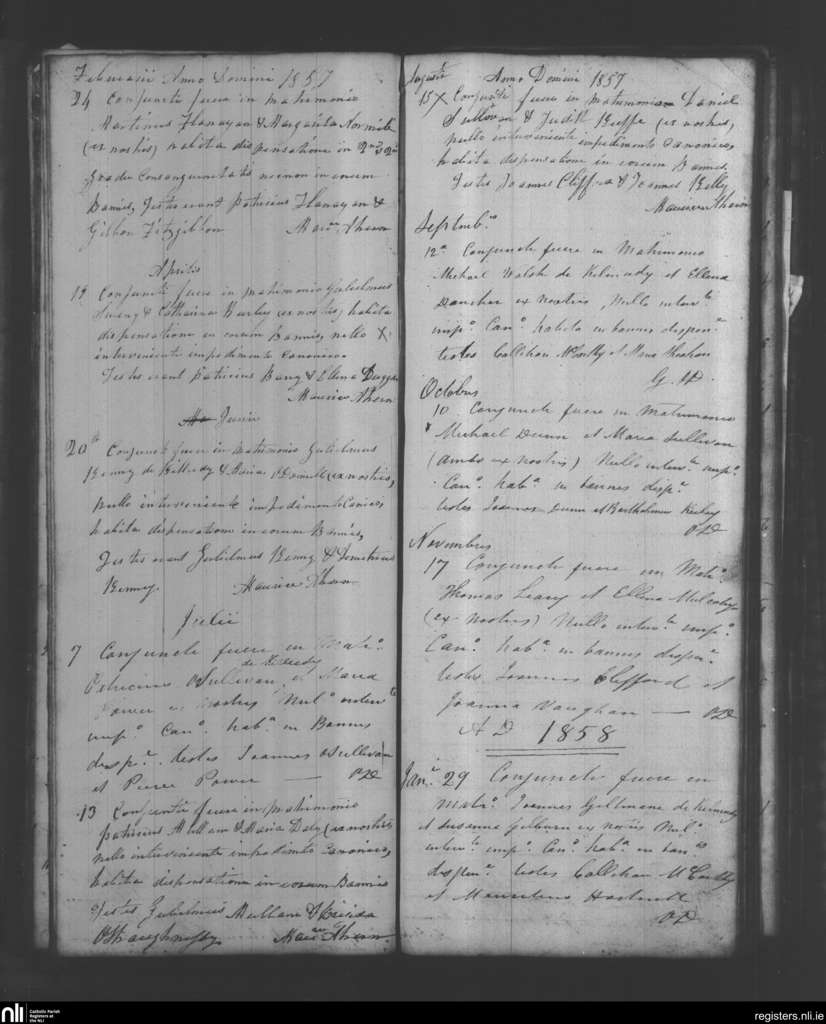 Februarii Anno Domini 1857
24 Conjuncti fuere in matrimonio
Martinus Flanagan & Margarita Normile
(ex nostris) habita dispensatione in 2nd & 2nd
gradu consanguinetatis necnon in eorum
Bannis, Testes erant Patricius Flanagan &
Gibbon Fitzgibbon Maur. Ahern
Aprilis
19 Conjuncti fuere in matrimonio Gulielmus
& Catharina Hurley (ex nostris) habita
dispensatione in eorum Bannis, nullo X
interveniente impedimento canonico.
Testes erant Patricius & Ellena Duggan
Maurice Ahern
Junii
20th Conjuncti fuere in matrimonio Gulielmus
Kenny de & Maria O'Donnell (ex nostris,
nullo interveniente impedimento Canonico,
habita dispensatione in eorum Bannis,
Testes erant Gulielmus Kenny & Demetrius
Kenny. Maurice Ahern
Julii
7 Conjuncti fuere in Matr.o
de Kilmudy
Patricius O'Sullivan et Maria
Power ex nostris Nul.o interv.te
imp.o Can.o hab.a in Bannis
disp.e. testes Joannes O'Sullivan
et Pierce Power — OD
13 Conjuncti fuere in matrimonio
Patricius Mullam & Maria Daly (ex nostris
nullo interveniente impedimto Canonico,
habita dispensatione in eorum Bannis
Testes Gulielmus Mullam &
O'Shaughnessy Mau.ce Ahern.
Augusti Anno Domini 1857
15 X Conjuncti fuere in matrimonio Daniel
Sullivan & Judith Keeffe (ex nostris,
nullo interveniente impedimento Canonico,
habita dispensatione in eorum Bannis.
Testes Joannes Clifford & Joannes Kelly
Maurice Ahern
Septemb.is
12.a Conjuncti fuere in Matrimonio
Michael Walsh de Kilmudy et Ellena
Danaher ex nostris, Nullo interv.te
imp.o Can.o habita in bannis dispen.e
testes Callihan McCarthy et Maria
G. OD.
Octobris
10 Conjuncti fuere in Matrimonio
Michael Dunn et Maria Sullivan
(ambo ex nostris) Nullo interv.te imp.o
Can.o hab.a in bannis disp.e
testes Joannes Dunn et Bartholomeus
OD
Novembris
17 Conjuncti fuere in Matr.o
Thomas Leary et Ellena Mulcahy
(ex nostris) Nullo interv.te imp.o
Can.o hab.a in bannis dispen.e
testes Joannes Clifford et
Joanna Vaughan — OD
A D 1858
Jan.ii 29 Conjuncti fuere in
Matr.o Joannes de Kilmudy
et Susanna ex nostris Nul.o
interv.te imp.o Can.o hab.a in ban.is
dispen.e testes Callihan McCarthy
et Mauritius Hartnett
OD
nli Catholic Parish
Registers at
the NLI
registers.nli.ie